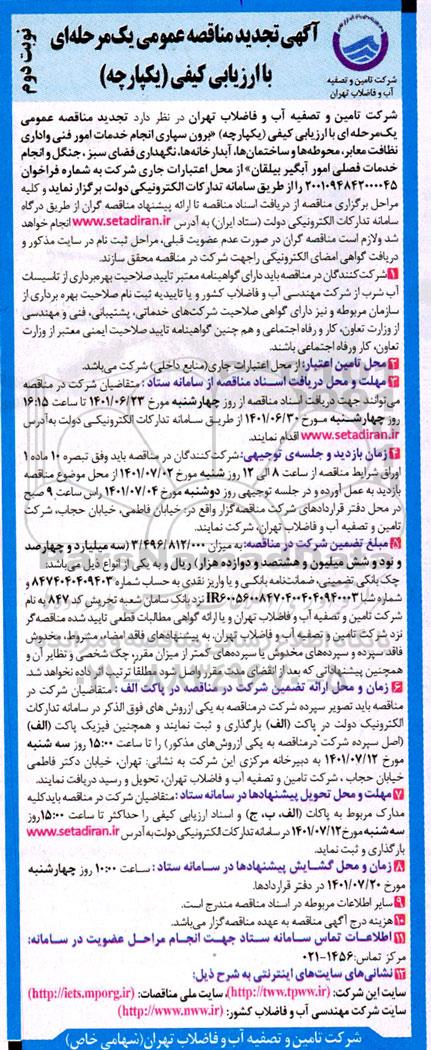 آگهی تجدید مناقصه عمومی یک مرحله‌ای
با ارزیابی کیفی (یکپارچه)
نوبت دوم
شرکت تامین و تصفیه
آب و فاضلاب تهران
شرکت تامین و تصفیه آب و فاضلاب تهران در نظر دارد تجدید مناقصه عمومی
یک مرحله ای با ارزیابی کیفی (یکپارچه) «برون سپاری انجام خدمات امور فنی و اداری
نظافت معابر، محوطه‌ها و ساختمان‌ها، آبدارخانه‌ها، نگهداری فضای سبز، جنگل و انجام
خدمات فصلی امور آبگیر بیلقان» از محل اعتبارات جاری شرکت به شماره فراخوان
۲۰۰۱۰۹۴۸۴۲۰۰۰۰۴۵ را از طریق سامانه تدارکات الکترونیکی دولت برگزار نماید و کلیه
مراحل برگزاری مناقصه از دریافت اسناد مناقصه تا ارائه پیشنهاد مناقصه گران از طریق درگاه
سامانه تدارکات الکترونیکی دولت (ستاد ایران) به آدرس www.setadiran.ir انجام خواهد
شد ولازم است مناقصه گران در صورت عدم عضویت قبلی، مراحل ثبت نام در سایت مذکور و
دریافت گواهی امضای الکترونیکی را جهت شرکت در مناقصه محقق سازند.
۱ شرکت‌کنندگان در مناقصه باید دارای گواهینامه معتبر تایید صلاحیت بهره‌برداری از تاسیسات
آب شرب از شرکت مهندسی آب و فاضلاب کشور و یا تاییدیه ثبت نام صلاحیت بهره برداری از
سازمان مربوطه و نیز دارای گواهی صلاحیت شرکت‌های خدماتی، پشتیبانی، فنی و مهندسی
از وزارت تعاون، کار و رفاه اجتماعی و هم چنین گواهینامه تایید صلاحیت ایمنی معتبر از وزارت
تعاون، کار ورفاه اجتماعی باشند.
۲ محل تامین اعتبار: از محل اعتبارات جاری (منابع داخلی) شرکت می‌باشد.
۳ مهلت و محل دریافت اسناد مناقصه از سامانه ستاد: متقاضیان شرکت در مناقصه
می‌توانند جهت دریافت اسناد مناقصه از روز چهارشنبه مورخ ۱۴۰۱/۰۶/۲۳ تا ساعت ۱۶:۱۵
روز چهارشنبه مورخ ۱۴۰۱/۰۶/۳۰ از طریق سامانه تدارکات الکترونیکی دولت به آدرس
www.setadiran.ir اقدام نمایند.
۴ زمان بازدید و جلسه‌ی توجیهی: شرکت کنندگان در مناقصه باید وفق تبصره ۱۰ ماده ۱
اوراق شرایط مناقصه از ساعت ۸ الی ۱۲ روز شنبه مورخ ۱۴۰۱/۰۷/۰۲ از محل موضوع مناقصه
بازدید به عمل آورده و در جلسه توجیهی روز دوشنبه مورخ ۱۴۰۱/۰۷/۰۴ راس ساعت ۹ صبح
در محل دفتر قراردادهای شرکت مناقصه‌گزار واقع در: خیابان فاطمی، خیابان حجاب، شرکت
تامین و تصفیه آب و فاضلاب تهران، شرکت نمایند.
۵ مبلغ تضمین شرکت در مناقصه: به میزان ۳/۴۹۶/۸۱۲/۰۰۰ (سه میلیارد و چهارصد
و نود و شش میلیون و هشتصد و دوازده هزار) ریال و به یکی از انواع ذیل می‌باشد:
چک بانکی تضمینی، ضمانت‌نامه بانکی و یا واریز نقدی به حساب شماره ۸۴۷۴۰۴۰۴۰۹۴۰۳ و
شماره شبا IR۶۰۰۵۶۰۰۸۴۷۰۴۰۰۴۰۴۰۹۴۰۰۳ نزد بانک سامان شعبه تجریش کد ۸۴۷ به نام
شرکت تامین و تصفیه آب و فاضلاب تهران و یا ارائه گواهی مطالبات قطعی تایید شده مناقصه‌گر
نزد شرکت تامین و تصفیه آب و فاضلاب تهران. به پیشنهادهای فاقد امضاء، مشروط، مخدوش
فاقد سپرده و سپرده‌های مخدوش یا سپرده‌های کمتر از میزان مقرر، چک شخصی و نظایر آن و
همچنین پیشنهاداتی که بعد از انقضای مدت مقرر واصل شود مطلقا ترتیب اثر داده نخواهد شد.
۶ زمان و محل ارائه تضمین شرکت در مناقصه در پاکت الف: متقاضیان شرکت در
مناقصه باید تصویر سپرده شرکت درمناقصه به یکی ازروش های فوق الذکر در سامانه تدارکات
الکترونیک دولت در پاکت (الف) بارگذاری و ثبت نمایند و همچنین فیزیک پاکت (الف)
(اصل سپرده شرکت درمناقصه به یکی ازروش‌های مذکور) را تا ساعت ۱۵:۰۰ روز سه شنبه
مورخ ۱۴۰۱/۰۷/۱۲ به دبیرخانه مرکزی این شرکت به نشانی: تهران، خیابان دکتر فاطمی
خیابان حجاب، شرکت تامین و تصفیه آب و فاضلاب تهران، تحویل و رسید دریافت نمایند.
۷ مهلت و محل تحویل پیشنهادها در سامانه ستاد: متقاضیان شرکت در مناقصه باید کلیه
مدارک مربوط به پاکات (الف، ب، ج) و اسناد ارزیابی کیفی را حداکثر تا ساعت ۱۵:۰۰ روز
سه شنبه مورخ ۱۴۰۱/۰۷/۱۲ در سامانه تدارکات الکترونیکی دولت به آدرس www.setadiran.ir
بارگذاری و ثبت نماید.
۸ زمان و محل گشایش پیشنهادها در سامانه ستاد: ساعت ۱۰:۰۰ روز چهارشنبه
مورخ ۱۴۰۱/۰۷/۲۰ در دفتر قراردادها.
۹ سایر اطلاعات مربوطه در اسناد مناقصه مندرج است.
۱۰ هزینه درج آگهی مناقصه به عهده مناقصه‌گزار می‌باشد.
۱۱ اطلاعات تماس سامانه ستاد جهت انجام مراحل عضویت در سامانه:
مرکز تماس: ۱۴۵۶-۰۲۱
۱۲ نشانی‌های سایت‌های اینترنتی به شرح ذیل:
سایت این شرکت: (http://tww.tpww.ir)، سایت ملی مناقصات: (http://iets.mporg.ir)
سایت شرکت مهندسی آب و فاضلاب کشور: (http://www.nww.ir)
شرکت تامین و تصفیه آب و فاضلاب تهران (سهامی خاص)